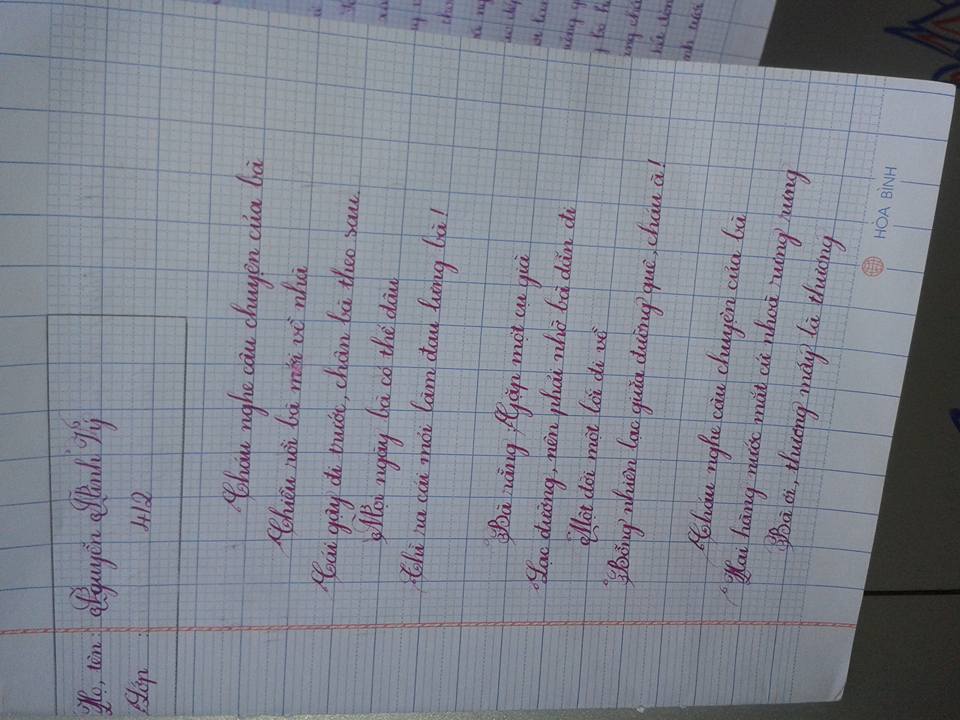 Họ, tên: Nguyễn Mạnh Kỳ
Lớp : 4/2
Cháu nghe câu chuyện của bà
Chiều rồi bà mới về nhà
Cái gậy đi trước, chân bà theo sau.
Mọi ngày bà có thế đâu
Thì ra cái mỏi làm đau lưng bà!
Bà rằng: Gặp một cụ già
Lạc đường, nên phải nhờ bà dẫn đi
Một đời một lối đi về
Bỗng nhiên lạc giữa đường quê, cháu à!
Cháu nghe câu chuyện của bà
Hai hàng nước mắt cứ nhoà rưng rưng
Bà ơi, thương mấy là thương
HÒA BÌNH